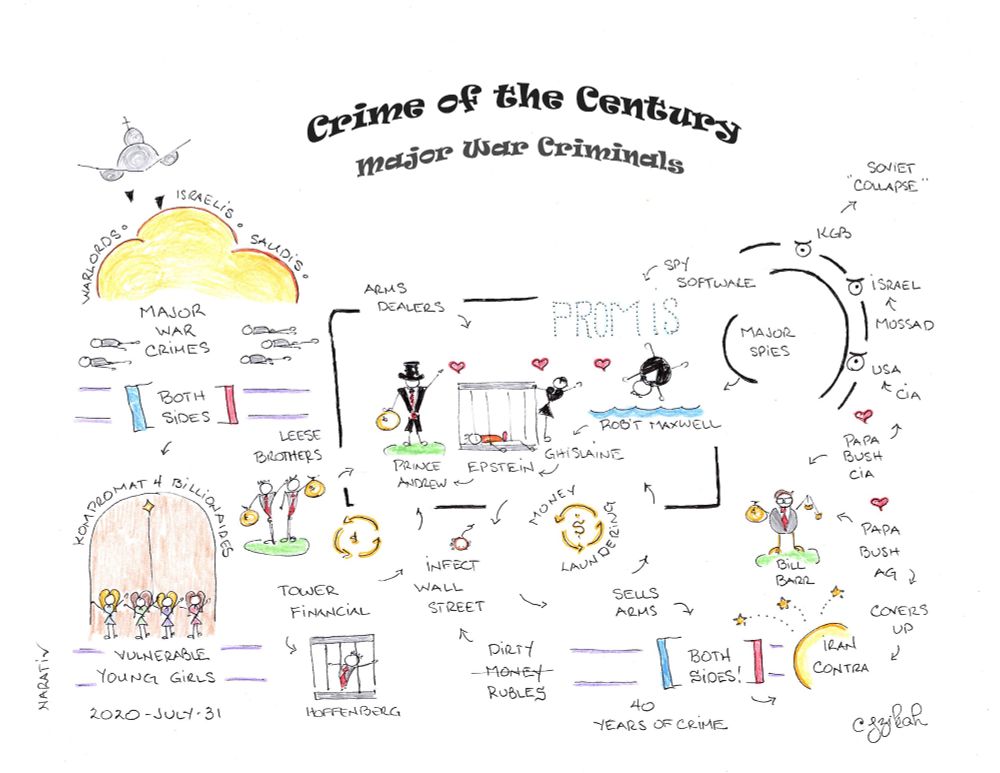 Crime of the Century
Major War Criminals
WARLORDS. ISRAELIS. SAUDIS.
MAJOR
WAR
CRIMES
BOTH
SIDES
KOMPROMAT 4 BILLIONAIRES
VULNERABLE
YOUNG GIRLS
NARATIV
2020-JULY-31
LEESE
BROTHERS
TOWER
FINANCIAL
HOFFENBERG
ARMS
DEALERS
SPY
SOFTWARE
PROMIS
PRINCE
ANDREW
EPSTEIN
GHISLAINE
ROB'T MAXWELL
$
MONEY
LAUNDERING
$
INFECT
WALL
STREET
DIRTY
MONEY
RUBLES
SELLS
ARMS
BOTH
SIDES!
40
YEARS OF CRIME
MAJOR
SPIES
SOVIET
"COLLAPSE"
KGB
ISRAEL
MOSSAD
USA
CIA
PAPA
BUSH
CIA
BILL
BARR
PAPA
BUSH
AG
COVERS
UP
IRAN
CONTRA